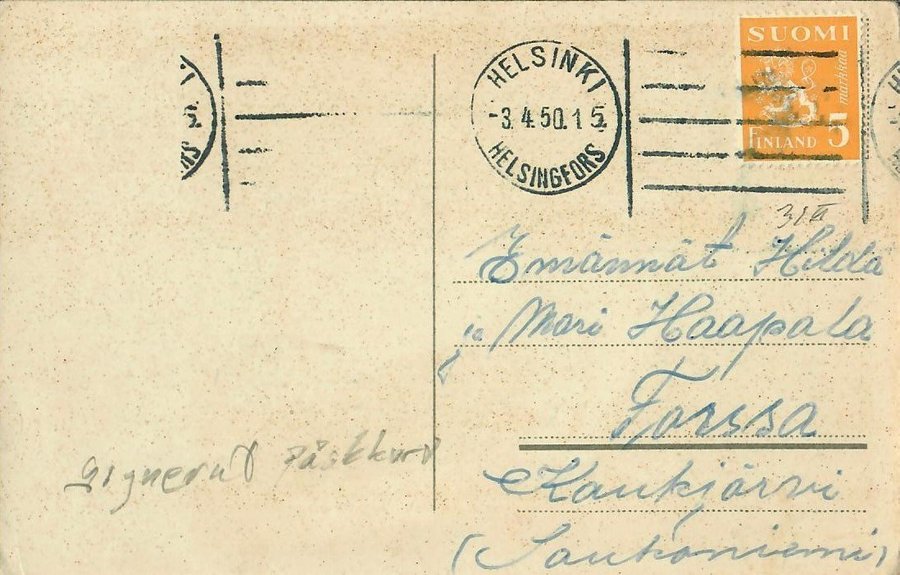 HELSINKI
-3.4.50.15
HELSINGFORS
SUOMI
5 markkaa
FINLAND
Emännät Hilda
ja Mari Haapala
Forssa
Kaukjärvi
(Soukoniemi)
Signerat Påskkort